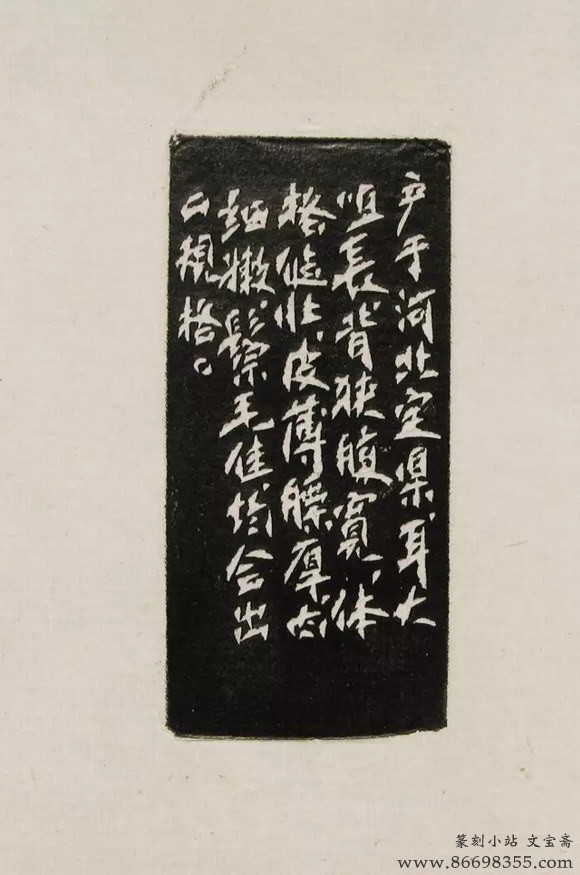 产于河北定県、耳大
咀長、背狭腹寬、体
格健壮、皮薄膘厚、肉
细嫩、鬃毛佳、均合出
口規格。
篆刻小站 文宝斋
www.86698355.com